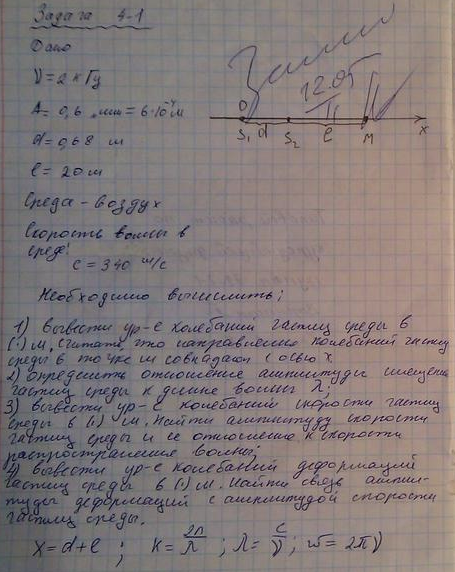 Задача 4-1
Дано
ν = 2 кГц
A = 0,6 мм = 6·10⁻⁴ м
d = 0,68 м
l = 20 м
Среда - воздух
Скорость волны в
среде:
c = 340 м/с
12.05
O
S₁ d S₂ l M x
Необходимо вычислить;
1) вывести ур-е колебаний частиц среды в
(·) М, считать что направление колебаний частиц
среды в точке М совпадают с осью X.
2) определить отношение амплитуды смещения
частиц среды к длине волны λ;
3) вывести ур-е колебаний скорости частиц
среды в (·) М. Найти амплитуду скорости
частиц среды и ее отношение к скорости
распространения волны;
4) вывести ур-е колебаний деформаций
частиц среды в (·) М. Найти связь ампли-
туды деформаций с амплитудой скорости
частиц среды.
X = d + l ; K = 2π/λ ; λ = c/ν ; ω = 2πν